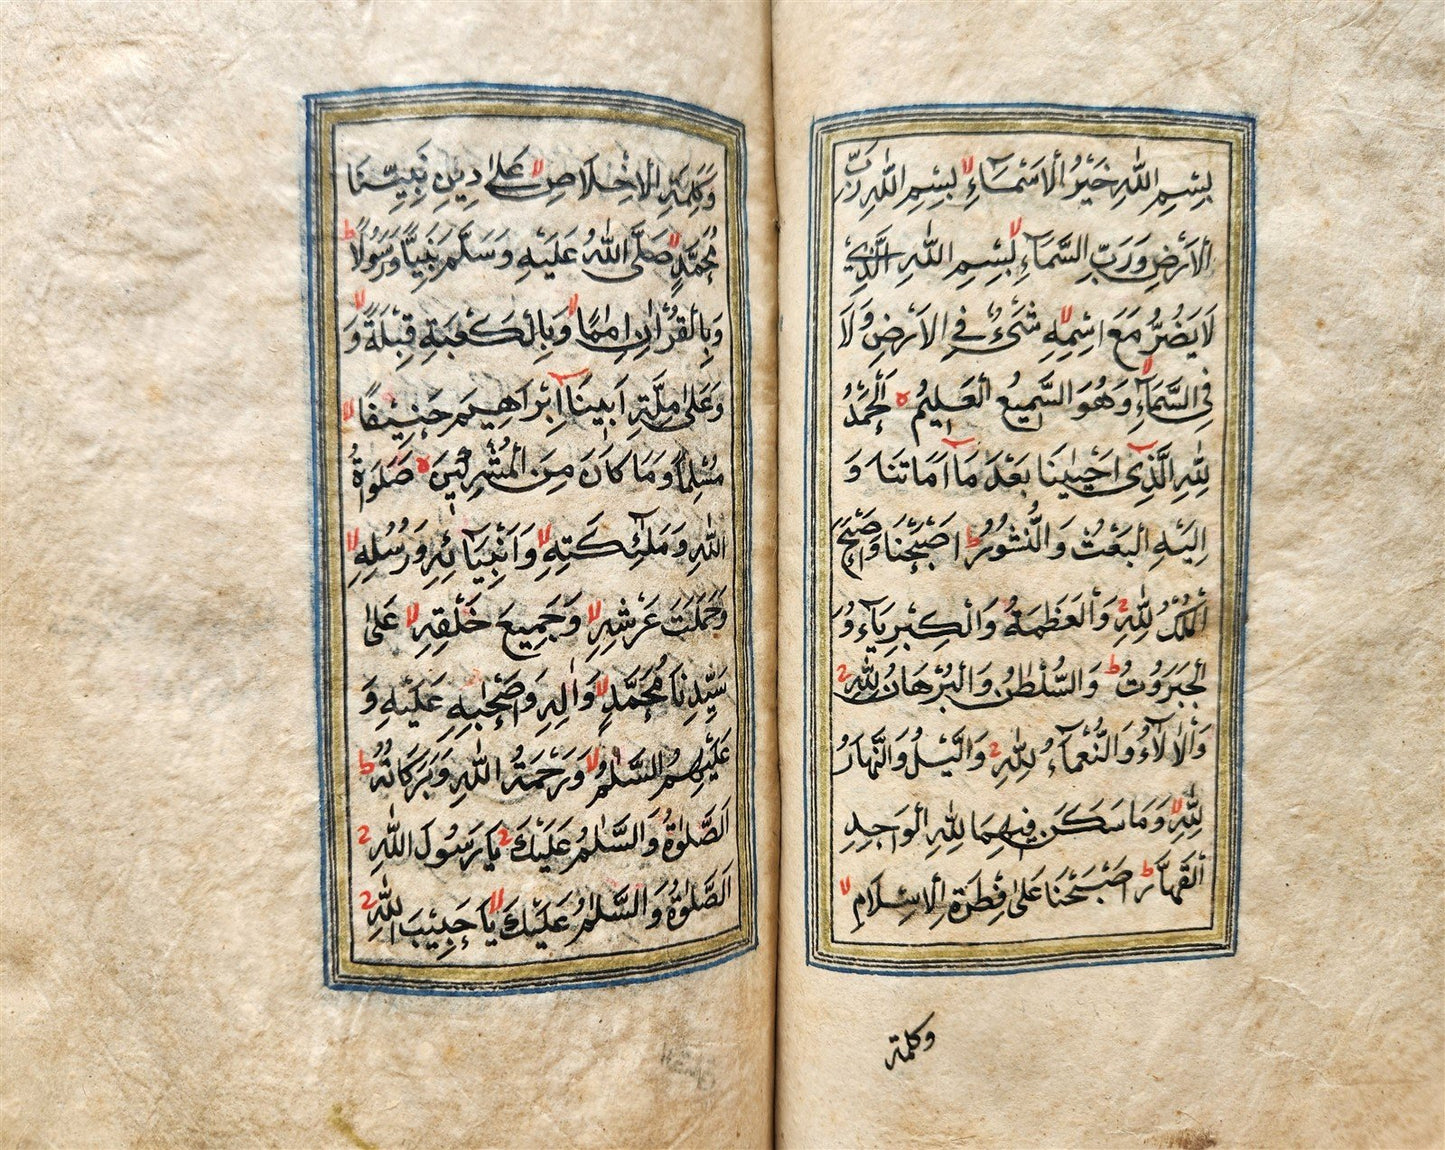 بِسْمِ اللهِ خَيْرُ الْاَسْمَاءِ بِسْمِ اللهِ رَبِّ
الْاَرْضِ وَرَبِّ السَّمَآءِ بِسْمِ اللهِ الَّذِيْ
لَا يَضُرُّ مَعَ اسْمِهِ شَيْءٌ فِي الْاَرْضِ وَلَا
فِي السَّمَآءِ وَهُوَ السَّمِيعُ الْعَلِيْمُ اَلْحَمْدُ
لِلّٰهِ الَّذِى اَحْيٰينَا بَعْدَ مَآ اَمَاتَنَا وَ
اِلَيْهِ الْبَعْثُ وَالنُّشُورُ اَصْبَحْنَا وَاَصْبَحَ
الْمُلْكُ لِلّٰهِ وَالْعَظَمَةُ وَالْكِبْرِيَآءُ وَ
الْجَبَرُوتُ وَالسُّلْطٰنُ وَالْبُرْهَانُ لِلّٰهِ
وَالْاٰلَآءُ وَالنُّعْمَآءُ لِلّٰهِ وَالَّيْلُ وَالنَّهَارُ
لِلّٰهِ وَمَا سَكَنَ فِيهِمَا لِلّٰهِ الْوَاحِدِ
الْقَهَّارِ اَصْبَحْنَا عَلٰى فِطْرَةِ الْاِسْلَامِ
وكلمة
وَكَلِمَةِ الْاِخْلَاصِ عَلٰى دِيْنِ نَبِيِّنَا
مُحَمَّدٍ صَلَّى اللهُ عَلَيْهِ وَسَلَّمَ نَبِيًّا وَرَسُولًا
وَبِالْقُرْاٰنِ اِمَامًا وَبِالْكَعْبَةِ قِبْلَةً وَ
وَعَلٰى مِلَّةِ اَبِينَآ اِبْرَاهِيمَ حَنِيْفًا
مُسْلِمًا وَمَا كَانَ مِنَ الْمُشْرِكِيْنَ صَلَوَاةُ
اللهِ وَمَلٰٓئِكَتِهِ وَاَنْبِيَآئِهِ وَرُسُلِهِ
وَحَمَلَتِ عَرْشِهِ وَجَمِيعِ خَلْقِهِ عَلٰى
سَيِّدِنَا مُحَمَّدٍ وَاٰلِهِ وَصَحْبِهِ عَلَيْهِ وَ
عَلَيْهِمُ السَّلٰمُ وَرَحْمَةُ اللهِ وَبَرَكَاتُهُ
اَلصَّلٰوةُ وَالسَّلٰمُ عَلَيْكَ يَا رَسُولَ اللهِ
اَلصَّلٰوةُ وَالسَّلٰمُ عَلَيْكَ يَا حَبِيْبَ اللهِ